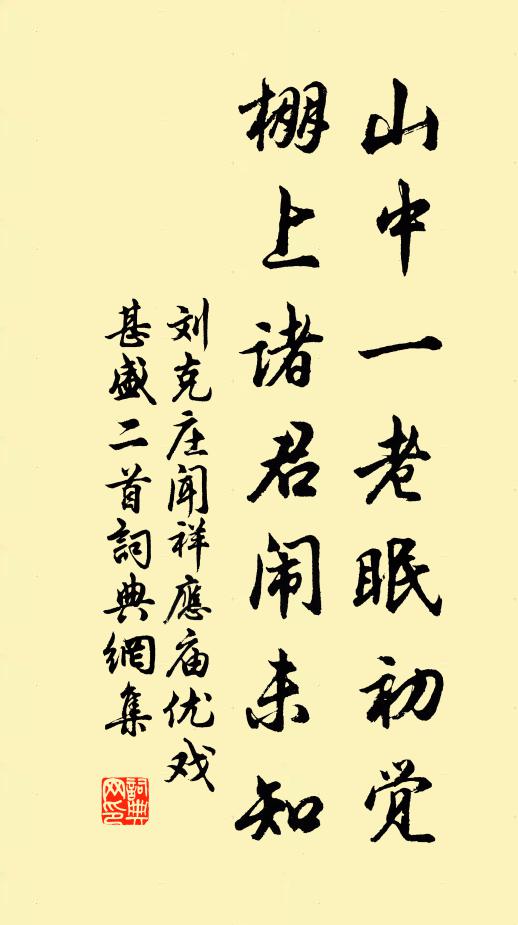 山中一老眠初觉
棚上诸君闹未知
刘克庄闻祥應庙优戏
甚盛二首詞典網集
詞典网印